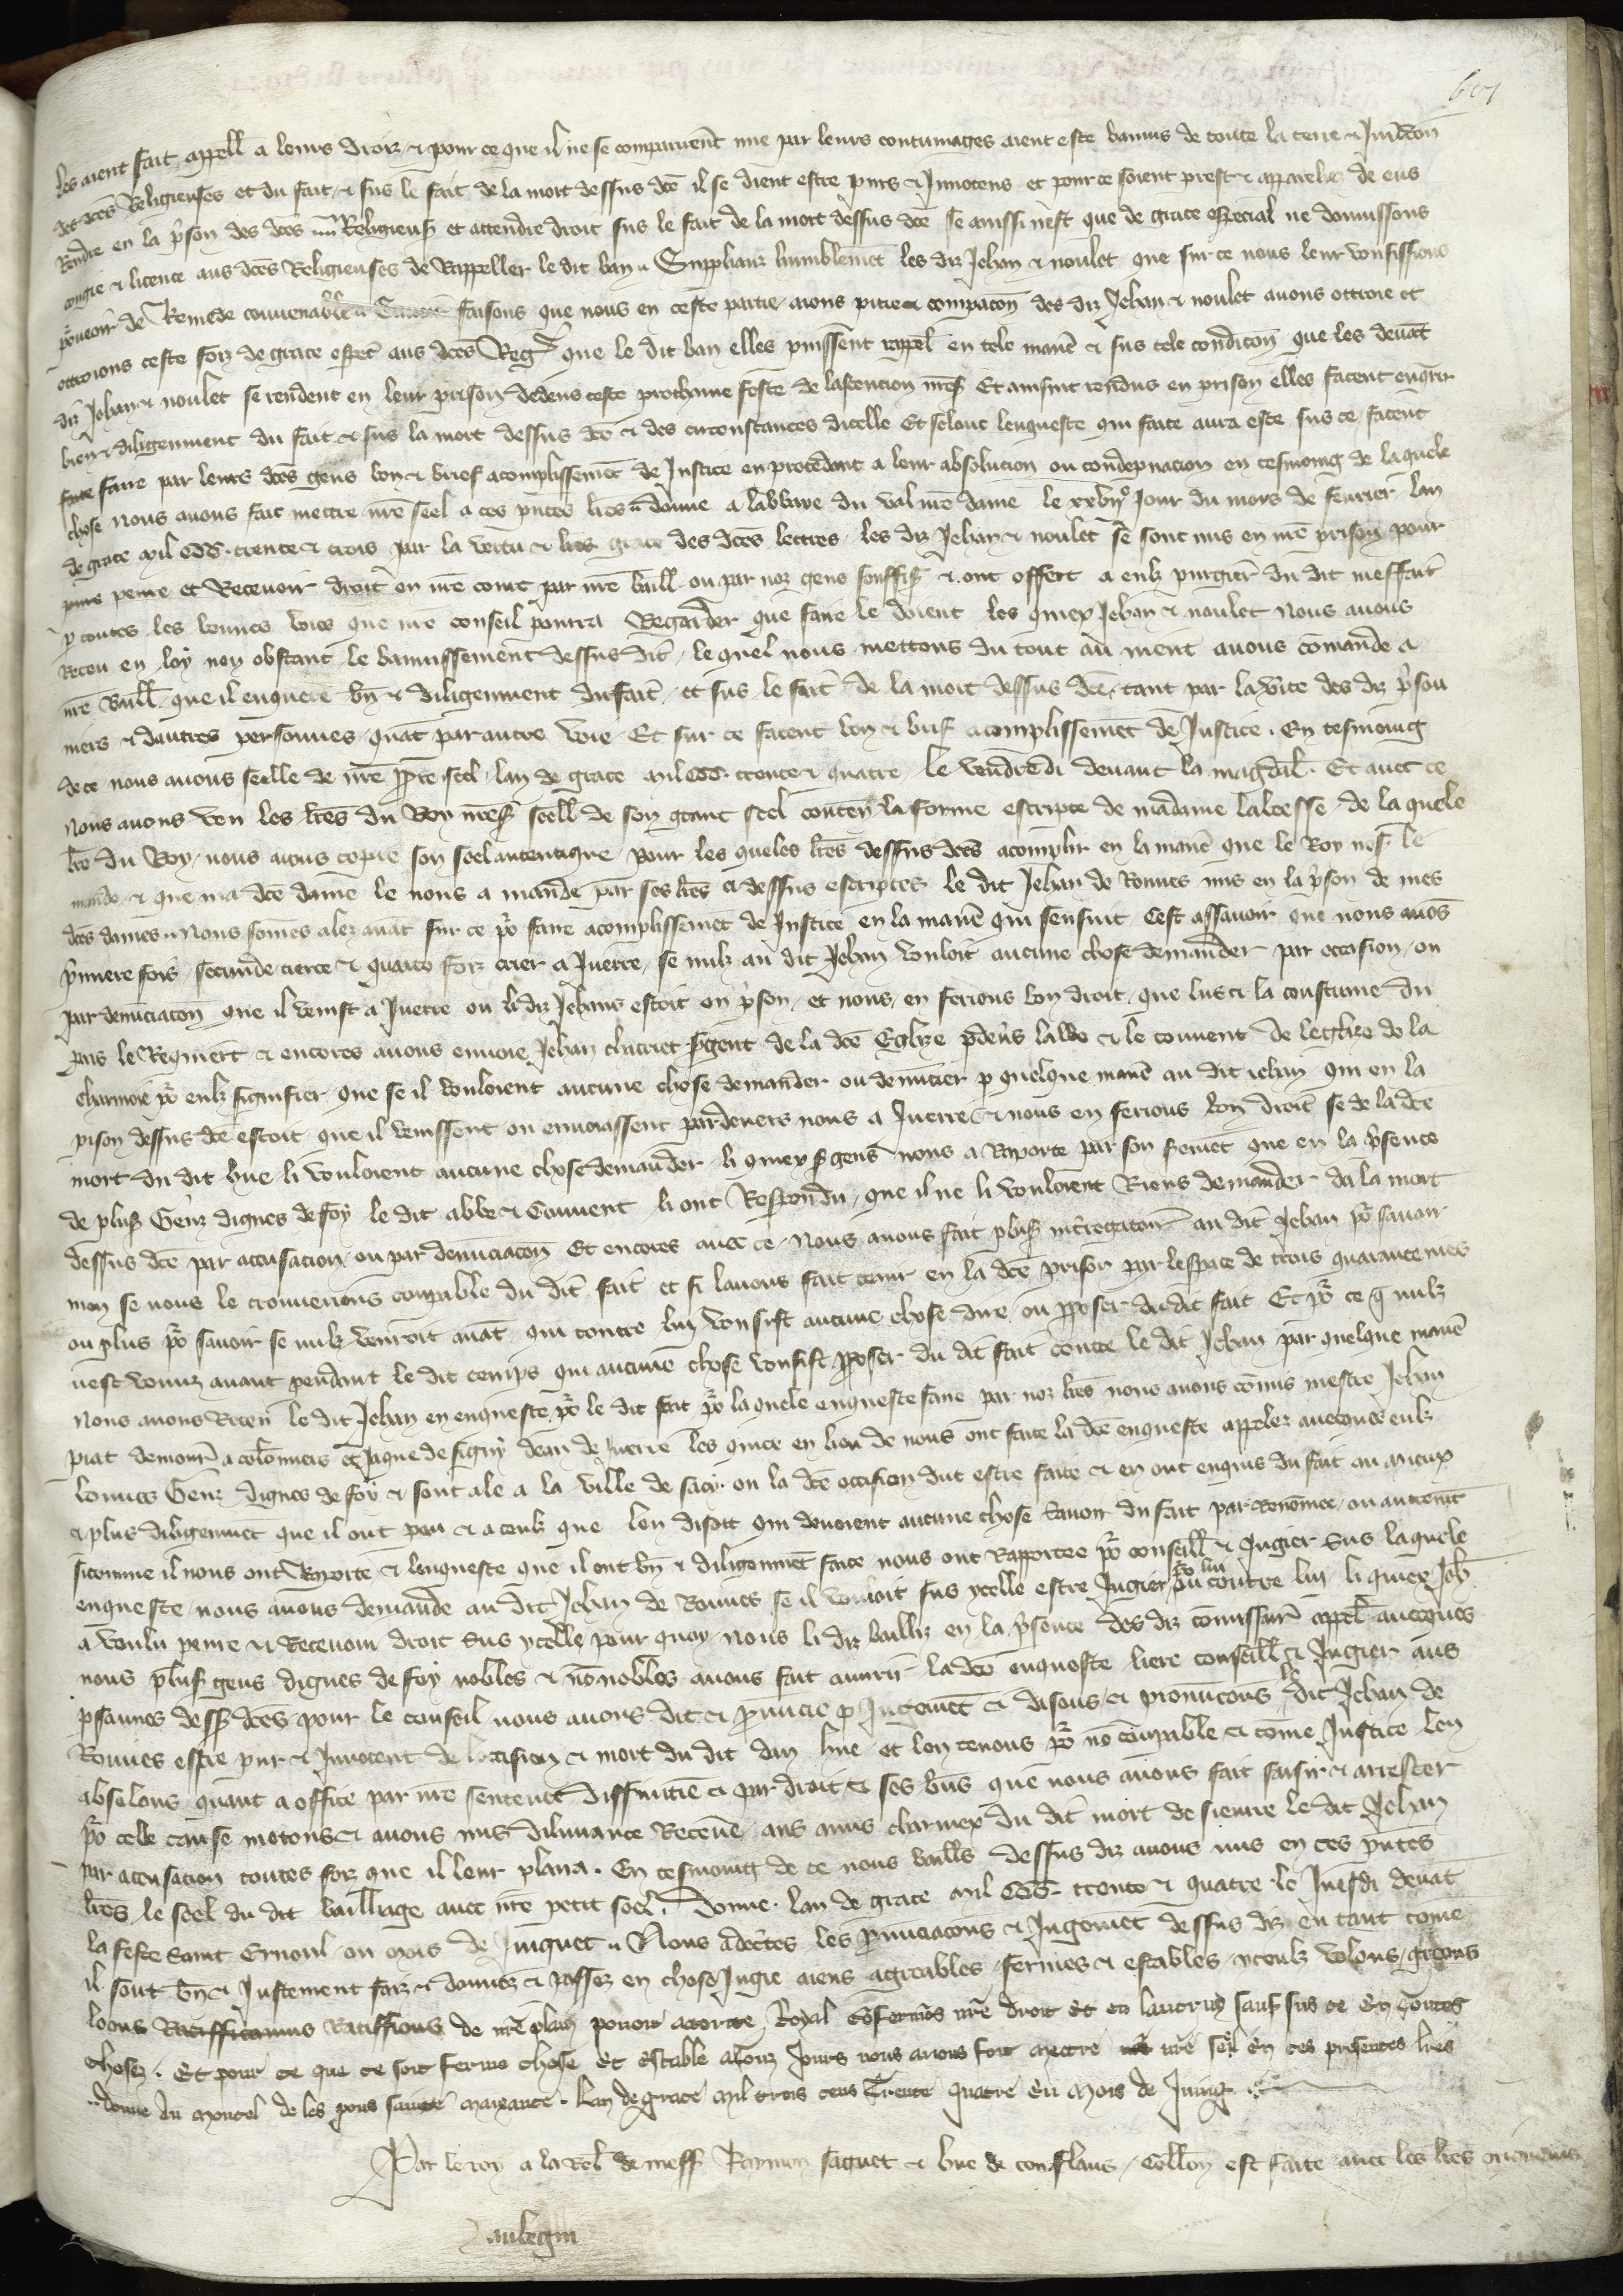 les aient fait appell a leurs droiz & pour ce que il ne se comparurent mie par leurs contumages aient este bannis de toute la terre & Juridicon
des dces Religieuses et du fait & sus le fait de la mort dessus dce il se dient estre purs & Innocens et pour ce soient prest & appareilliez de eus
Rendre en la prison des dces Religieuses et attendre droit sus le fait de la mort dessus dce se ainssi nest que de grace especial ne donnissons
congie & licence aus dces Religieuses de Rappeller le dit ban Supplianz humblement les diz Jehan & noulet que sur ce nous leur vousissions
pourveoir de Remede convenable faisons que nous en ceste partie aions pitie & compacon des diz Jehan & noulet avons ottroie et
ottroions ceste foiz de grace especial aus dces Reg que le dit ban elles puissent rappel en tele maniere & sus tele condicon que les devant
diz Jehan & noulet se rendent en leur prison dedens ceste prochaine feste de lascencion Et ainsint rendus en prison elles facent enquerir
bien & diligenment du fait & sus la mort dessus dce & des circonstances dicelle Et selonc lenqueste qui faite aura este sus ce facent
faire par leurs dces gens bon & brief acomplissement de Justice en procedant a leur absolucion ou condepnacion en tesmoing de laquele
chose nous avons fait mettre nre seel a ces pntes lres donne a labbaye du val nre dame le xxvije Jour du mois de fevrier lan
de grace mil CCC trente & trois par la vertu & grace des dces lectres les diz Jehan & noulet se sont mis en nre prison pour
penre et Recevoir droit en nre court par nre baill ou par noz gens souffis & ont offert a eulz purgier du dit meffait
p toutes les bonnes voies que nre conseil pourra Regarder que faire le doient les quiex Jehan & noulet nous avons
Receu en loy non obstant le bannissement dessus dit le quel nous mettons du tout au nient avons commande a
nre Baill que il enquiere bn & diligenment du fait et sus le fait de la mort dessus dce tant par la vite des diz prison
niers & dautres personnes quant par autre voie Et sur ce facent bon & brief acomplissement de Justice En tesmoing
de ce nous avons seelle de nre ppre seel lan de grace mil CCC trente & quatre le vendredi devant la magdal Et avec ce
nous avons veu les lres du Roy nres seell de son grant seel conten la forme escripte de madame labeesse de la quele
lre du Roy nous avons copie son seel autentique pour les queles lres dessus dces acomplir en la maniere que le Roy nres le
mande & que ma dce dame le nous a mande par ses lres ci dessus escriptes le dit Jehan de Ronnes mis en la prison de mes
dces dames Nous somes alez avant sur ce pour faire acomplissement de Justice en la maniere qui sensuit Cest assavoir que nous avons
premiere fois secunde tierce & quarte foiz crier a Juerre se nulz au dit Jehan vouloit aucune chose demander par occasion ou
par denunciacon que il venist a Juerre ou li diz Jehans estoit en prison et nous en ferions bon droit que lus & la coustume du
pais le Requiert & encores avons envoie Jehan sergent de la dce Eglize par devers labbe & le couvent de leglize de la
charmoie pour eulz signifier que se il vouloient aucune chose demander ou denuncier p quelque maniere au dit iehan qui en la
prison dessus dce estoit que il venissent ou envoiassent pardevers nous a Juerre & nous en ferions bon droit se de la dce
mort du dit hue li vouloient aucune chose demander li quiex sergens nous a Raporte par son serement que en la presence
de plus Genz dignes de foy le dit abbe & Couvent li ont Respondu que il ne li vouloient Riens demander de la mort
dessus dce par accusacion ou par denunciacon Et encores avec ce nous avons fait plus interrogatoire au dit Jehan pour savoir
mon se nous le trouverions coupable du dit fait et si lavons fait tenir en la dce prison par lespace de trois quarantenies
ou plus pour savoir se nulz vendroit avant qui contre luy vousist aucune chose dire ou proposer du dit fait Et pour ce que nulz
nest venuz avant pendant le dit temps qui aucune chose vousist proposer du dit fait contre le dit Jehan par quelque maniere
Nous avons Receu le dit Jehan en enqueste pour le dit fait pour la quele enqueste faire par noz lres nous avons comis mestre Jehan
piat demourant a colomiers et Jaque de signy dean de Juerre les quiex en lieu de nous ont faite la dce enqueste appelez avecques eulz
bonnes Genz dignes de foy & sont ale a la ville de sacy ou la dce occision dut estre faite & en ont enquis du fait au mieux
& plus diligenment que il ont peu & a ceulz que len disoit qui devoient aucune chose savoir du fait par Renommee ou autrement
si comme il nous ont Raporte & lenqueste que il ont bn & diligenment faite nous ont Rapportee pour conseill & Jugier sus laquele
enqueste nous avons demande au dit Jehan de Ronnes se il vouloit sus ycelle estre Jugier pour lui ou contre lui li quiex Jeh
a voulu penre & Recevoir droit sus ycelle pour quoy nous li diz bailliz en la presence des diz commissaires appel avecques
nous plus gens dignes de foy nobles & non nobles avons fait ouvrir la dce enqueste liere conseill & Jugier aus
psonnes dess dces pour le conseil nous avons dit & pronuncie p Jugement & disons & pronuncons le dit Jehan de
Ronnes estre pur & Innocent de loccision & mort du dit dan hue et len tenons pour non coupable & come Justice len
absolons quant a office par nre sentence diffinitive & par droit & ses biens que nous avions fait saisir & arrester
pour celle cause metons & avons mis delivrance Recevue aus amis charniex du dit mort de sienre le dit Jehan
par accusacion toutes foiz que il leur plaira En tesmoing de ce nous baillis dessus diz avons mis en ces pntes
lres le seel du dit bailliage avec nre petit seel Donne lan de grace mil CCC trente & quatre le Juesdi devant
la feste saint Ernoul ou mois de Juignet Nous adecertes les pronunciacons & Jugement dessus diz en tant come
il sont bn & Justement faiz & donnez & passez en chose Jugie aiens agreables fermes & estables yceulz volons greons
loons Ratifficamus Ratiffions de nre plain povoir auctorite Royal confermons nre droit et en lautruy sauf sus ce en toutes
choses Et pour ce que ce soit ferme chose et estable a touz Jours nous avons fait mectre nre seel en ces presentes lres
donne au moncel de les pons sainte maixance Lan de grace mil trois cens Trente quatre eu mois de Juing
Par le roy a la Rel de mess Raymon saquet & hue de conflans Collon est faite avec les lres
aubegin